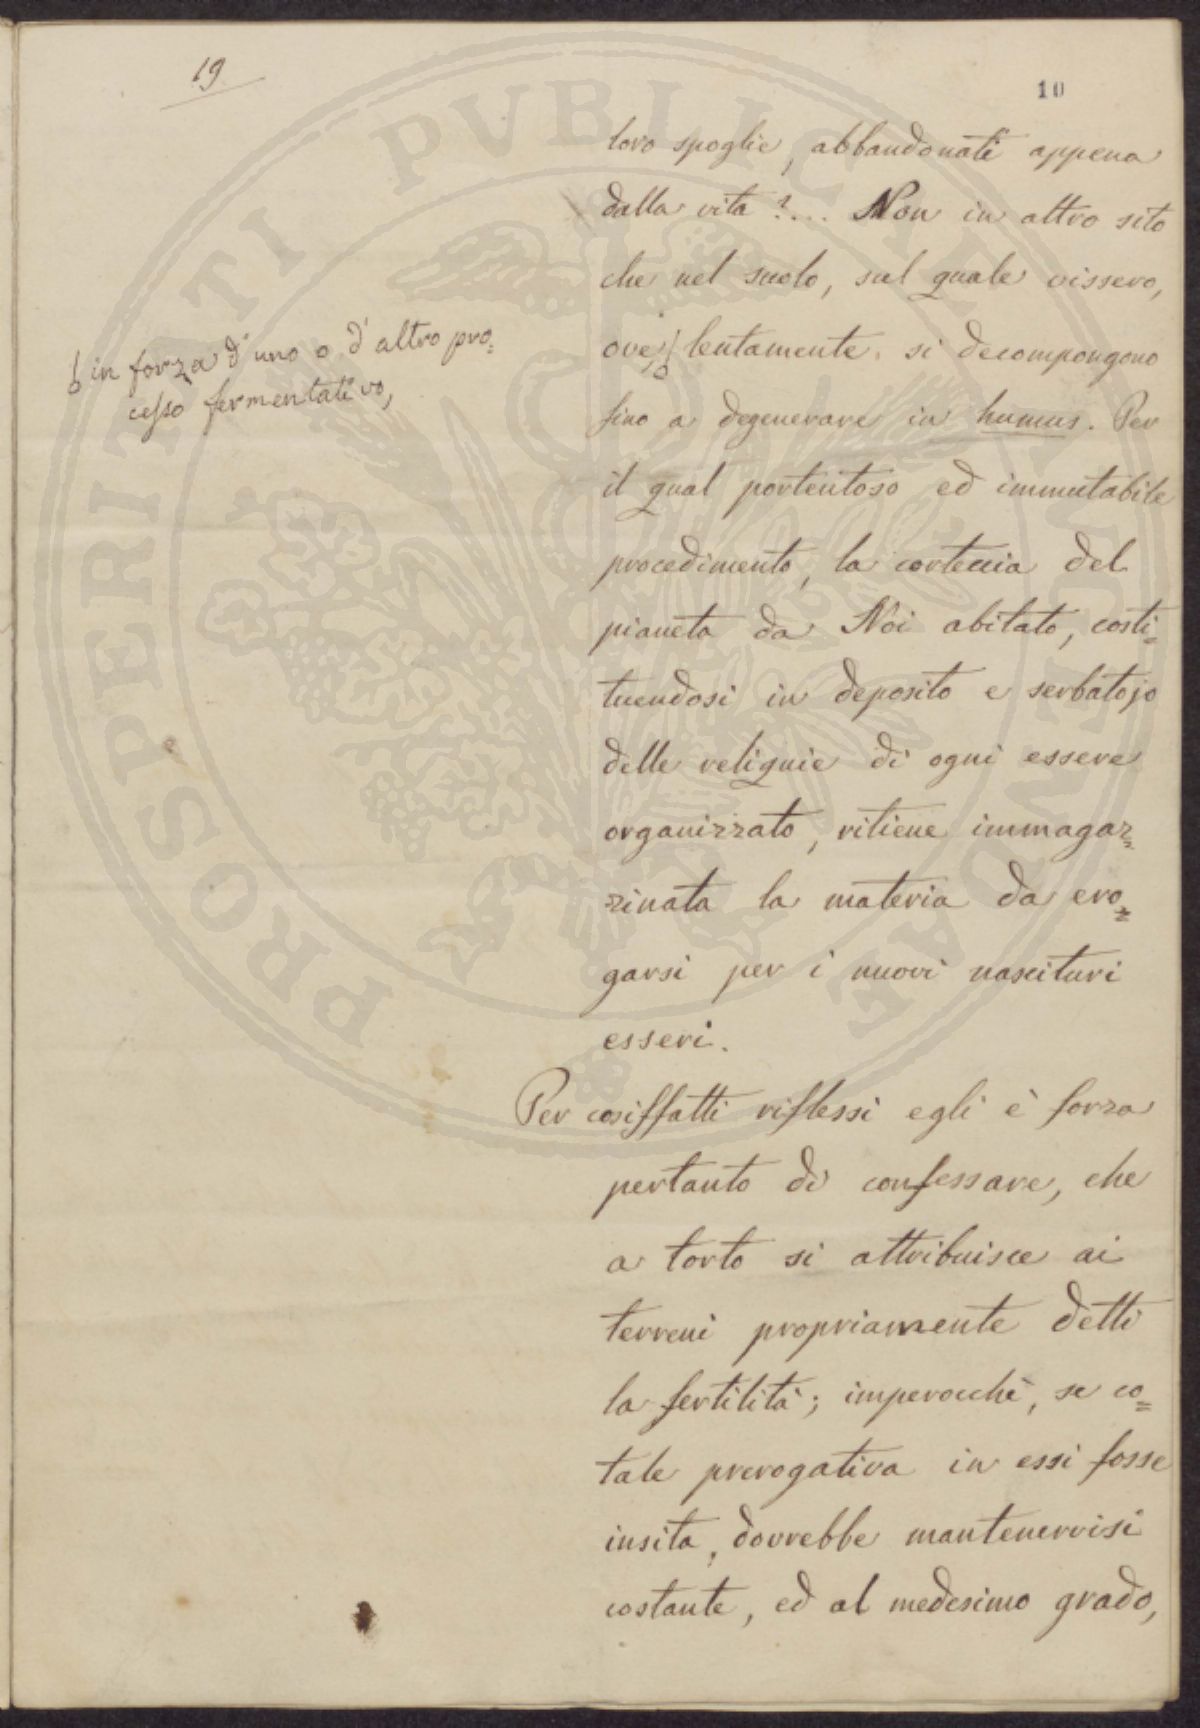 19
10
loro spoglie, abbandonati appena
dalla vita?... Non in altro sito
che nel suolo, sul quale vissero,
ove, lentamente, si decompongono
in forza d'uno o d'altro pro=
cesso fermentativo,
fino a degenerare in humus. Per
il qual portentoso ed immutabile
procedimento, la corteccia del
pianeta da Noi abitato, costi=
tuendosi in deposito e serbatojo
delle reliquie di ogni essere
organizzato, ritiene immagaz=
zinata la materia da ero=
garsi per i nuovi nascituri
esseri.
Per cosiffatti riflessi egli è forza
pertanto di confessare, che
a torto si attribuisce ai
terreni propriamente detti
la fertilità; imperocchè, se co=
tale prerogativa in essi fosse
insita, dovrebbe mantenervisi
costante, ed al medesimo grado,
PROSPERITATI PVBLICAE AVGENDAE